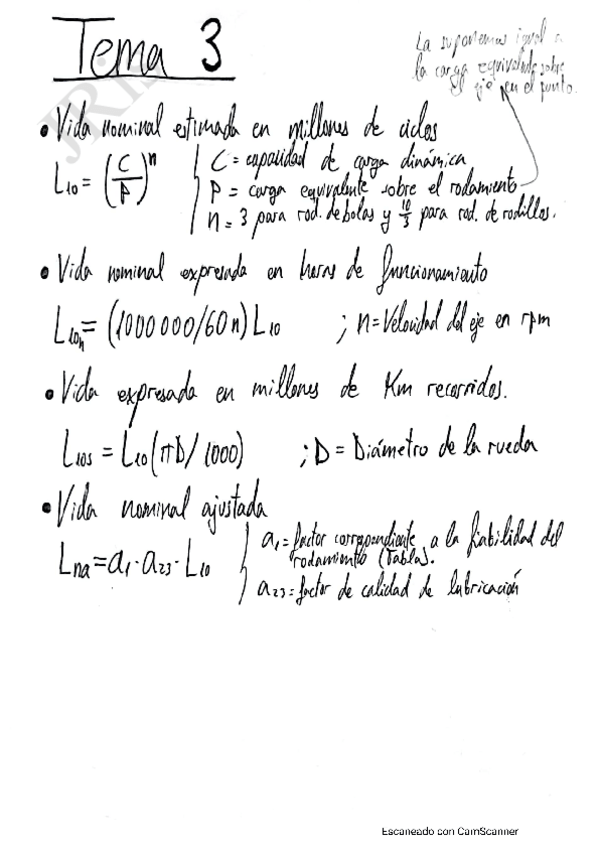 Tema 3
La suponemos igual a
la carga equivalente sobre
el eje en el punto.
• Vida nominal estimada en millones de ciclos
L10 = (C/P)^n
C = capacidad de carga dinámica
P = carga equivalente sobre el rodamiento
n = 3 para rod. de bolas y 10/3 para rod. de rodillos.
• Vida nominal expresada en horas de funcionamiento
L10h = (1000000/60n) L10 ; n = Velocidad del eje en rpm
• Vida expresada en millones de Km recorridos.
L10s = L10 (πD/1000) ; D = Diámetro de la rueda
• Vida nominal ajustada
Lna = a1 · a23 · L10
a1 = factor correspondiente a la fiabilidad del
rodamiento (Tablas).
a23 = factor de calidad de lubricación
Escaneado con CamScanner